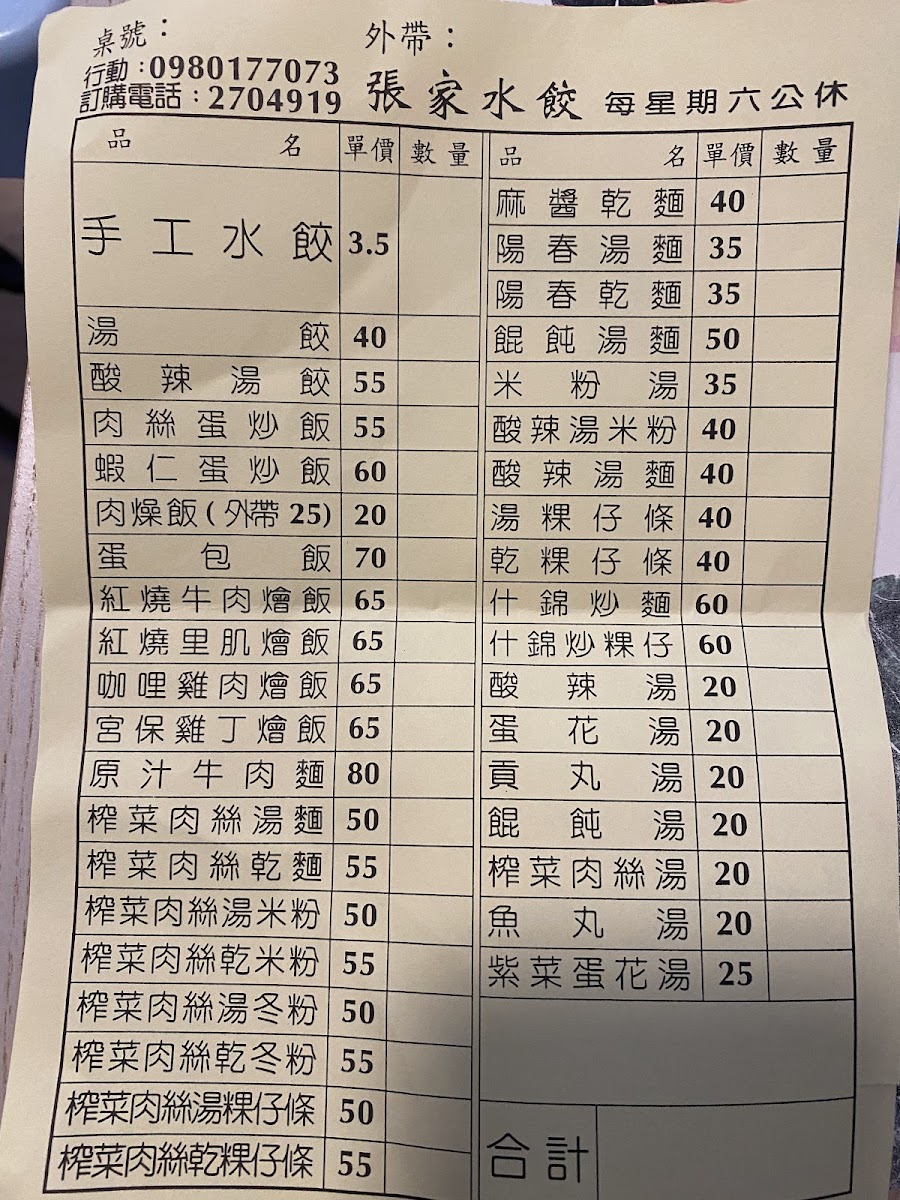 桌號：
外帶：
行動：0980177073
訂購電話：2704919
張家水餃 每星期六公休
品名 單價 數量
手工水餃 3.5
湯餃 40
酸辣湯餃 55
肉絲蛋炒飯 55
蝦仁蛋炒飯 60
肉燥飯(外帶25) 20
蛋包飯 70
紅燒牛肉燴飯 65
紅燒里肌燴飯 65
咖哩雞肉燴飯 65
宮保雞丁燴飯 65
原汁牛肉麵 80
榨菜肉絲湯麵 50
榨菜肉絲乾麵 55
榨菜肉絲湯米粉 50
榨菜肉絲乾米粉 55
榨菜肉絲湯冬粉 50
榨菜肉絲乾冬粉 55
榨菜肉絲湯粿仔條 50
榨菜肉絲乾粿仔條 55
品名 單價 數量
麻醬乾麵 40
陽春湯麵 35
陽春乾麵 35
餛飩湯麵 50
米粉湯 35
酸辣湯米粉 40
酸辣湯麵 40
湯粿仔條 40
乾粿仔條 40
什錦炒麵 60
什錦炒粿仔 60
酸辣湯 20
蛋花湯 20
貢丸湯 20
餛飩湯 20
榨菜肉絲湯 20
魚丸湯 20
紫菜蛋花湯 25
合計